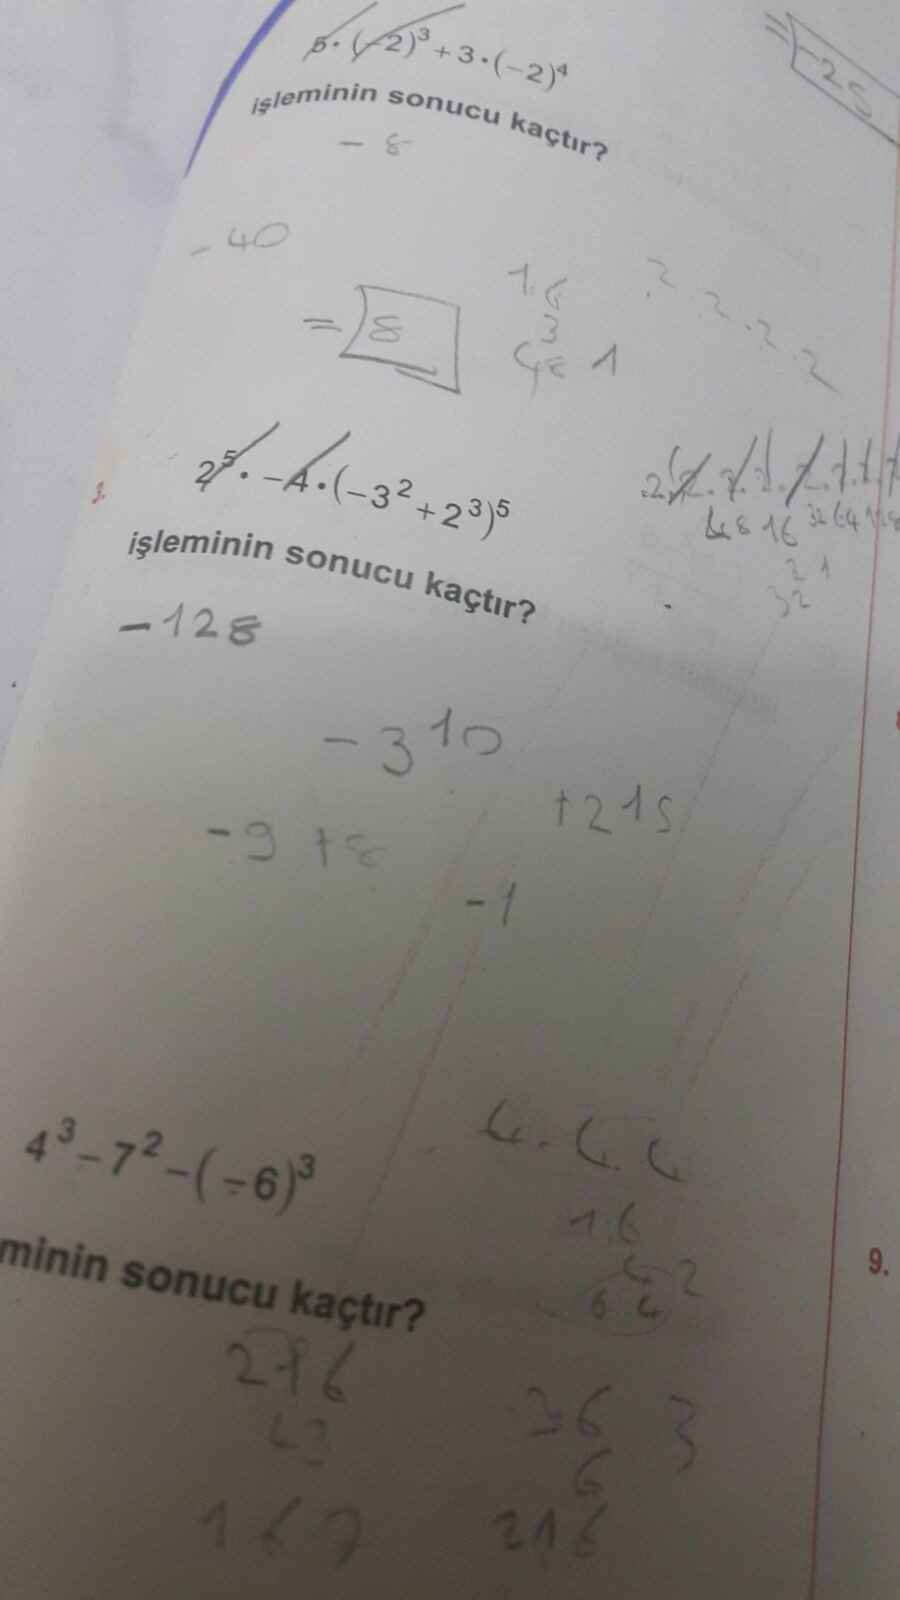 5·(-2)³+3·(-2)⁴
= -25
işleminin sonucu kaçtır?
- 8
- 40
16
3
48 1
2.2.2.2
= 8
3.
2⁵·-4·(-3²+2³)⁵
işleminin sonucu kaçtır?
48 16 32 64 128
2 1
32
-128
-3¹⁰
+2¹⁵
-9 +8
-1
4³-7²-(-6)³
minin sonucu kaçtır?
4.4.4
16
4 2
64
9.
216
49
167
36 3
6
216